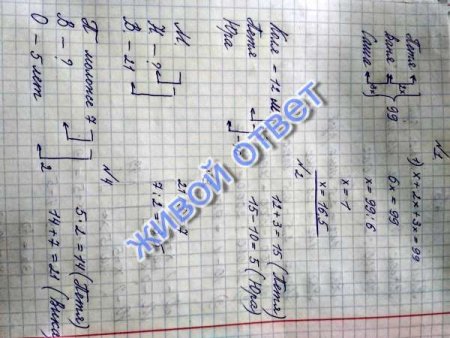 №1
Петя 1) x + 2x + 3x = 99
Ваня 2x 6x = 99
Саша 3x 99 x = 99:6
x = 1
x = 16,5
№2
Коля = 12
Петя 12 + 3 = 15 (Петя)
Юра 15 - 10 = 5 (Юра)
Н. - ?
В. - 21
7:2
№4
П моложе 7
В - ? 5·2 = 14 (Петя)
О - 5 лет 2 14 + 7 = 21 (Вика)
ЖИВОЙ ОТВЕТ